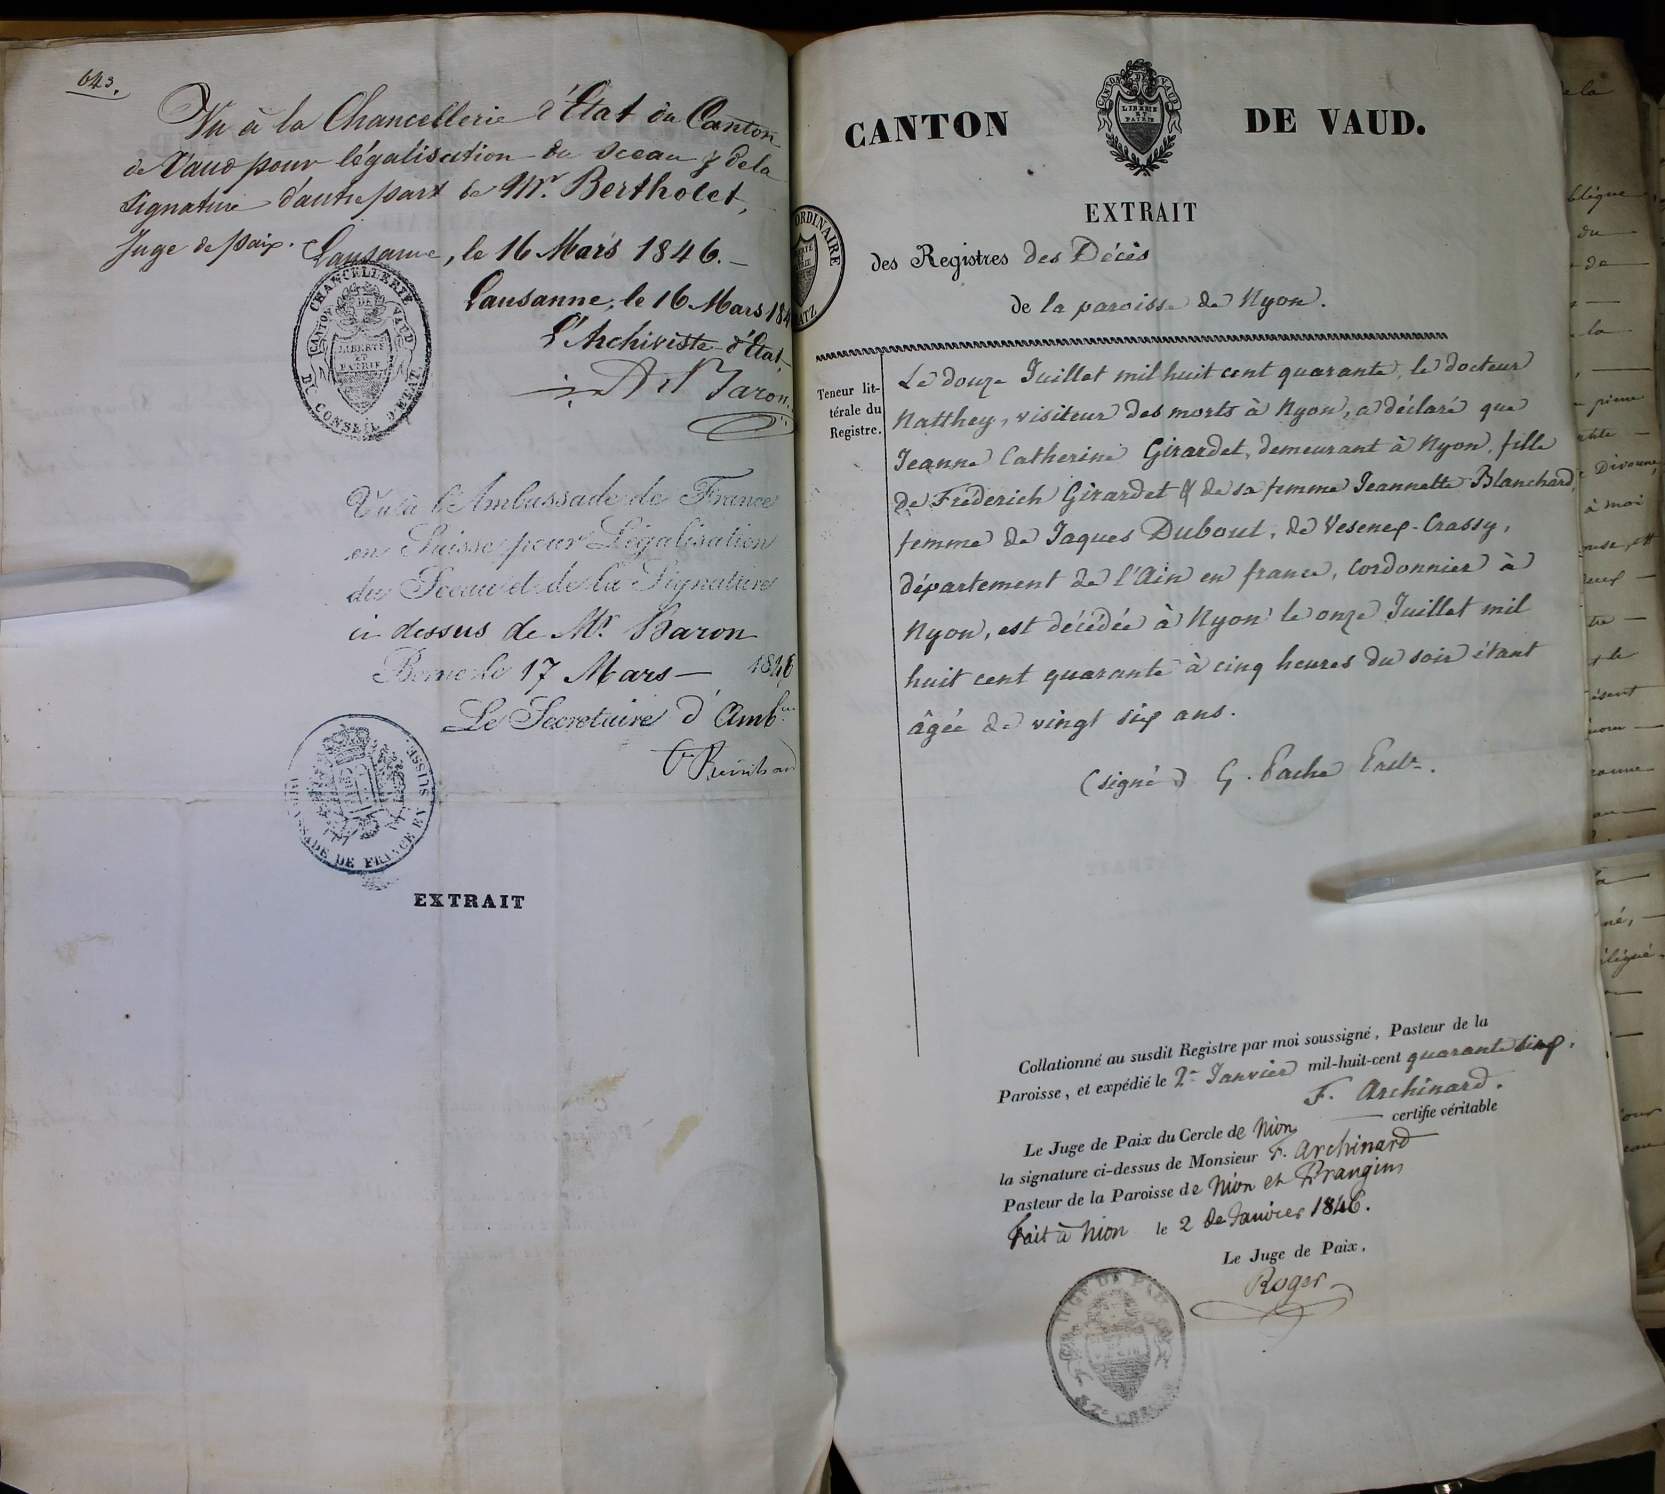 643.
Vu à la Chancellerie d'Etat du Canton
de Vaud pour légalisation du sceau & de la
signature d'autre part de Mr. Bertholet,
Juge de paix. Lausanne, le 16 Mars 1846.
Lausanne, le 16 Mars 184
L'Archiviste d'Etat,
Baron
CHANCELLERIE
CANTON DE VAUD
LIBERTÉ
ET
PATRIE
DU CONSEIL D'ETAT
Vu à l'Ambassade de France
en Suisse pour Légalisation
du Sceau et de la Signature
ci dessus de Mr. Baron
Berne le 17 Mars 1846
Le Secrétaire d'Amb
SADE DE FRANCE EN SUISSE
EXTRAIT
CANTON DE VAUD.
CANTON DE VAUD
LIBERTE
ET
PATRIE
EXTRAIT
ORDINAIRE
des Registres des Décès
de la paroisse de Nyon.
Teneur lit-
térale du
Registre.
Le douze Juillet mil huit cent quarante, le docteur
Natthey, visiteur des morts à Nyon, a déclaré que
Jeanne Catherine Girardet, demeurant à Nyon, fille
de Frédérich Girardet & de sa femme Jeannette Blanchard,
femme de Jaques Dubout, de Vesenex-Crassy,
département de l'Ain en france, Cordonnier à
Nyon, est décédée à Nyon le onze Juillet mil
huit cent quarante à cinq heures du soir étant
âgée de vingt six ans.
(signé) G. Pache Past.
Collationné au susdit Registre par moi soussigné, Pasteur de la
Paroisse, et expédié le 2 Janvier mil-huit-cent quarante six.
F. Archinard.
Le Juge de Paix du Cercle de Nion certifie véritable
la signature ci-dessus de Monsieur F. Archinard
Pasteur de la Paroisse de Nion et Prangins
Fait à Nion le 2 de Janvier 1846.
Le Juge de Paix,
Roger